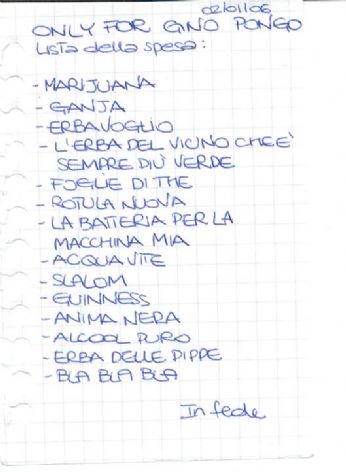 02/01/06
ONLY FOR GINO PONGO
LISTA della spesa:
- MARIJUANA
- GANJA
- ERBAVOGLIO
- L'ERBA DEL VICINO CHE E'
SEMPRE PIÙ VERDE
- FOGLIE DI THE
- ROTULA NUOVA
- LA BATTERIA PER LA
MACCHINA MIA
- ACQUAVITE
- SLALOM
- GUINNESS
- ANIMA NERA
- ALCOOL PURO
- ERBA DELLE PIPPE
- BLA BLA BLA
In fede